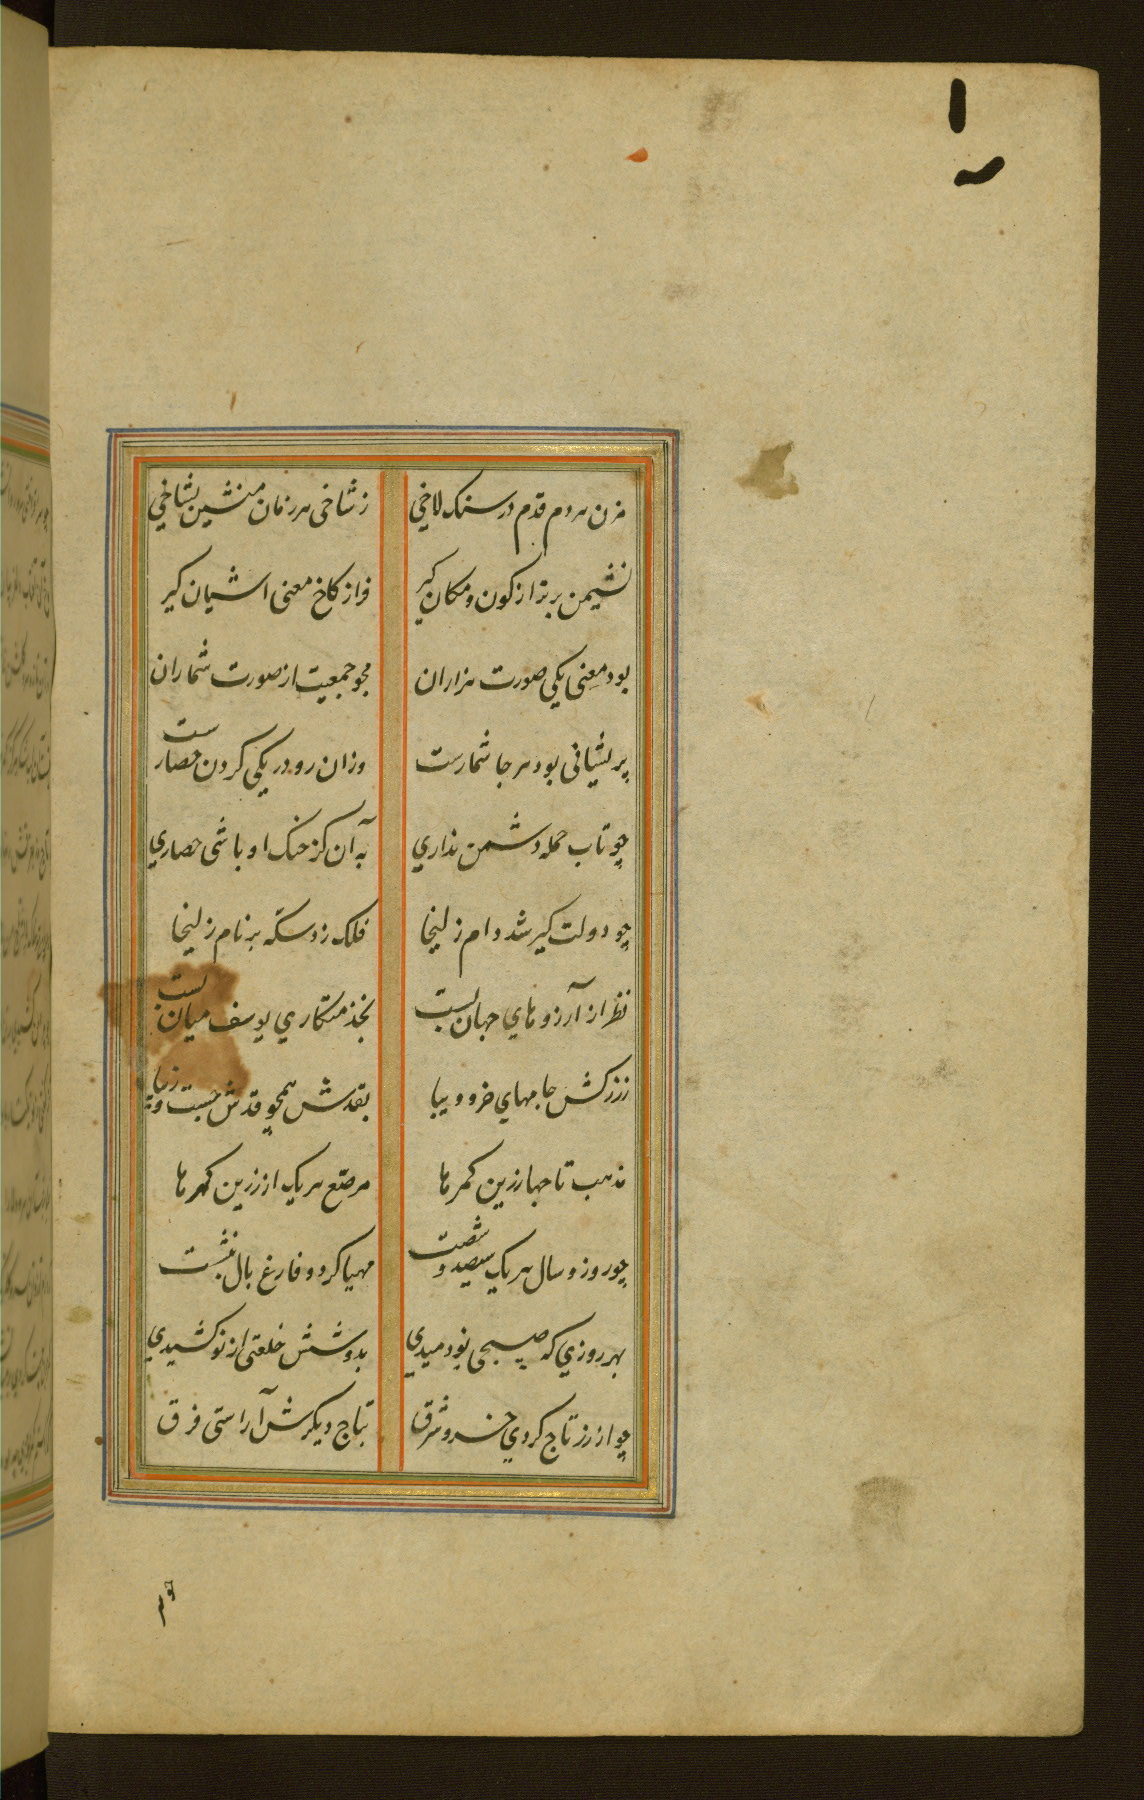 مزن هردم قدم در سنک لاخي ز شاخی هر زمان منشین بشاخي
نشیمن برتر از کون و مکان کیر فراز کاخ معنی اشیان کیر
بود معنی یکی صورت هزاران مجو جمعیت از صورت شماران
پریشانی بود هر جا شمارست وزان رو در یکی کردن حصارست
چو تاب حمله دشمن نداري به آن کز جنک او باشی حصاري
چو دولت کیر شد دام زلیخا فلک زد سکه بر نام زلیخا
نظر از آرزوهاي جهان بست بخذمتکاري یوسف میان بست
ززرکش جامهاي خز و دیبا بقدش همچو قدش چست و زیبا
مذهب تاجها زرین کمرها مرصع هریک از زرین کمرها
چو روز و سال هریک سیصد و شصت مهیا کرد و فارغ بال بنشست
بهر روزي که صبحی نو دمیدي بدوشش خلعتی از نو کشیدي
چو از زر تاج کردي خسرو شرق بتاج دیکرش آراستی فرق